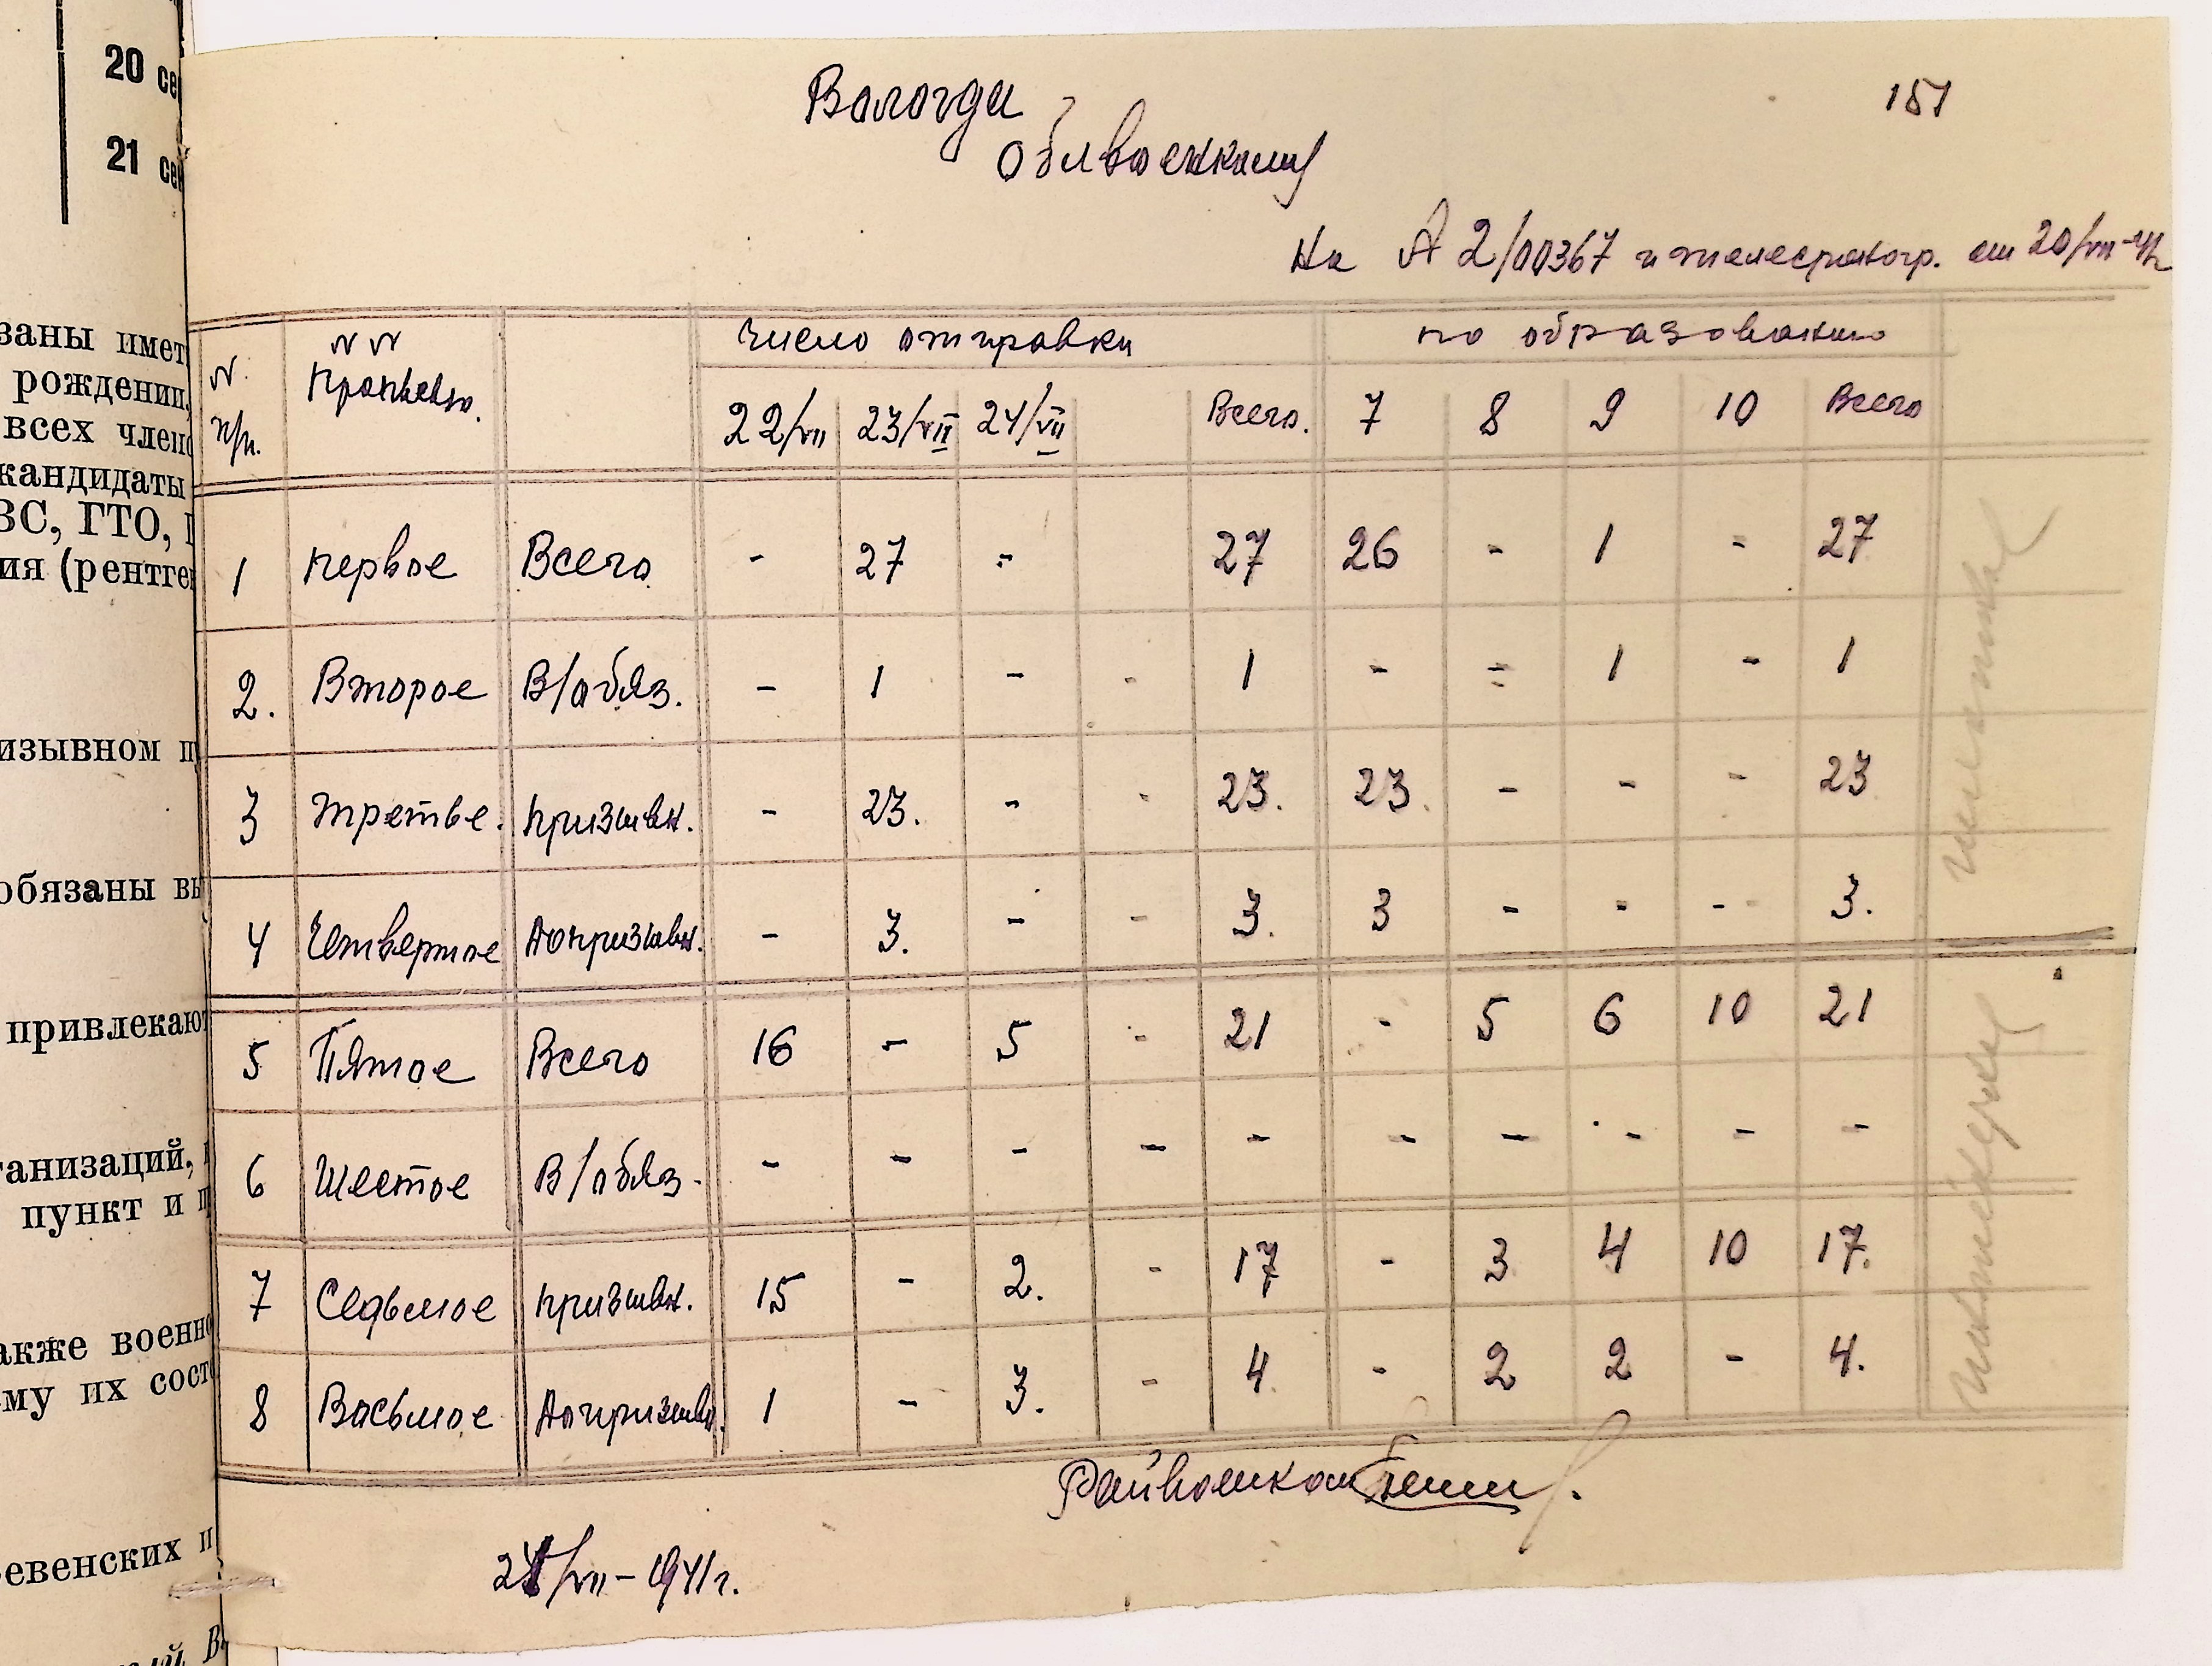 20 се
21 сен
заны имет
рождении,
всех члено
кандидаты
ВС, ГТО, П
ия (рентген
изывном п
обязаны вы
привлекают
ганизаций,
пункт и п
акже военно
му их сост
евенских п
Вологда
Облвоенкому
151
На № 2/00367 и телефоногр. от 20/VII-41г
N п/п. | NN пропись. | | Число отправки | по образованию
22/VII | 23/VII | 24/VII | | Всего. | 7 | 8 | 9 | 10 | Всего
1 | первое | Всего | - | 27 | - | | 27 | 26 | - | 1 | - | 27
2. | Второе | В/обяз. | - | 1 | - | - | 1 | - | - | 1 | - | 1
3 | третье. | призывн. | - | 23. | - | - | 23. | 23. | - | - | - | 23
4 | Четвертое | Допризывн. | - | 3. | - | - | 3. | 3 | - | - | - | 3.
5 | Пятое | Всего | 16 | - | 5 | - | 21 | - | 5 | 6 | 10 | 21
6 | Шестое | В/обяз. | - | - | - | - | - | - | - | - | - | -
7 | Седьмое | призывн. | 15 | - | 2. | - | 17 | - | 3 | 4 | 10 | 17.
8 | Восьмое | Допризывн. | 1 | - | 3. | - | 4 | - | 2 | 2 | - | 4.
Райвоенком
/VII-1941г.